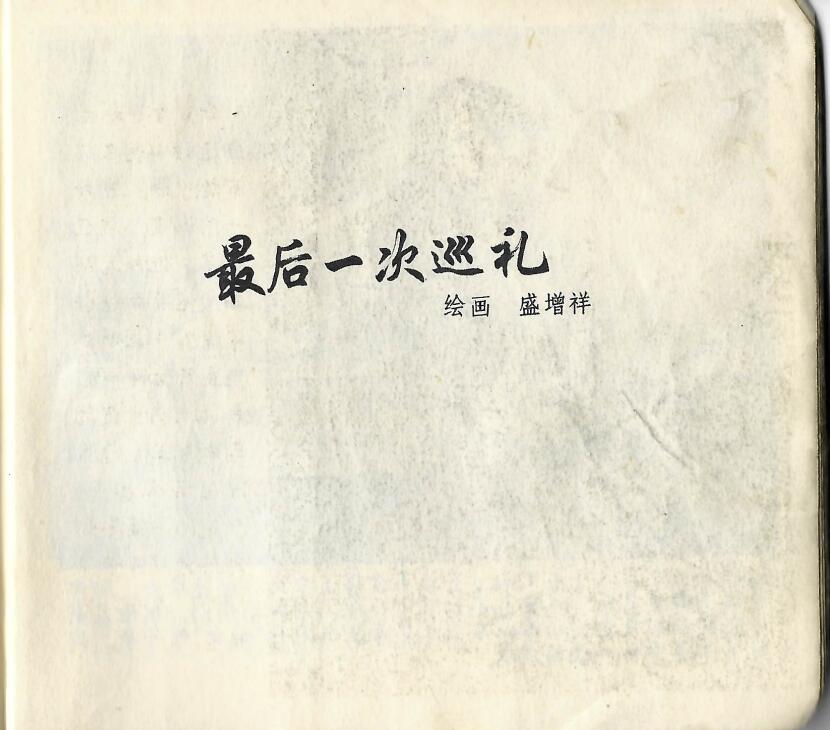 最后一次巡礼
绘画 盛增祥